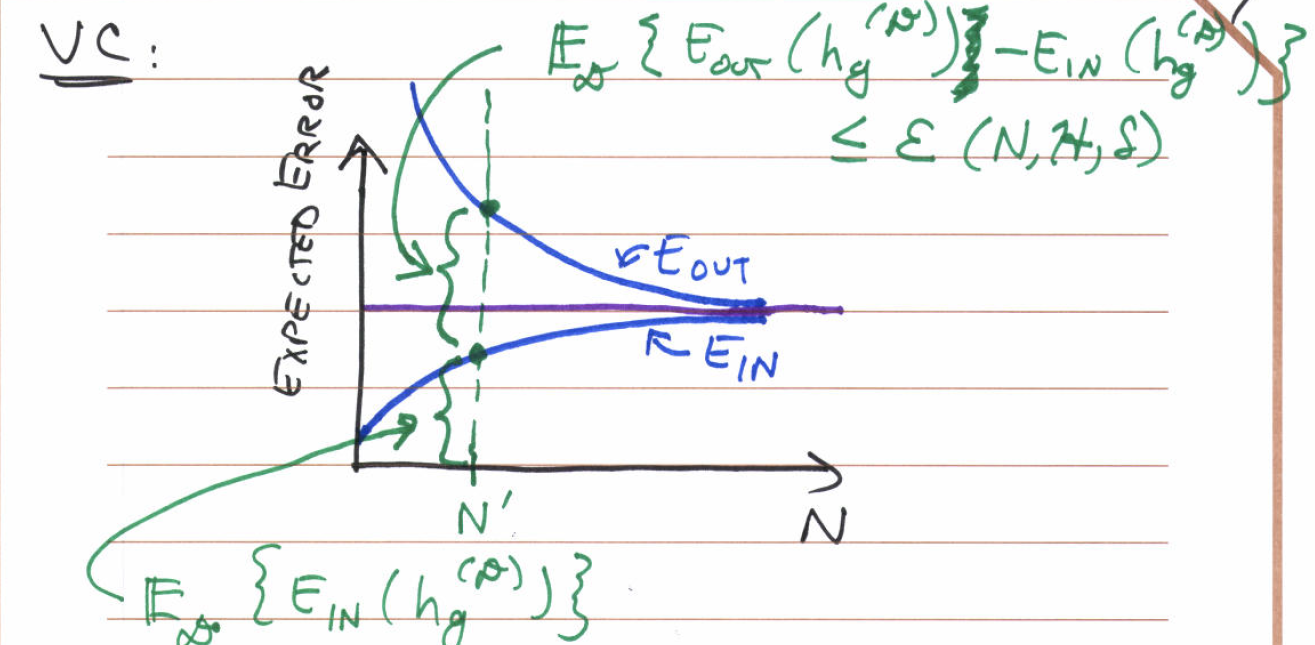 VC:
𝔼_𝒟 { E_OUT (h_g^(𝒟)) - E_IN (h_g^(𝒟)) }
≤ ε (N, ℋ, δ)
EXPECTED ERROR
E_OUT
E_IN
N'
N
𝔼_𝒟 { E_IN (h_g^(𝒟)) }